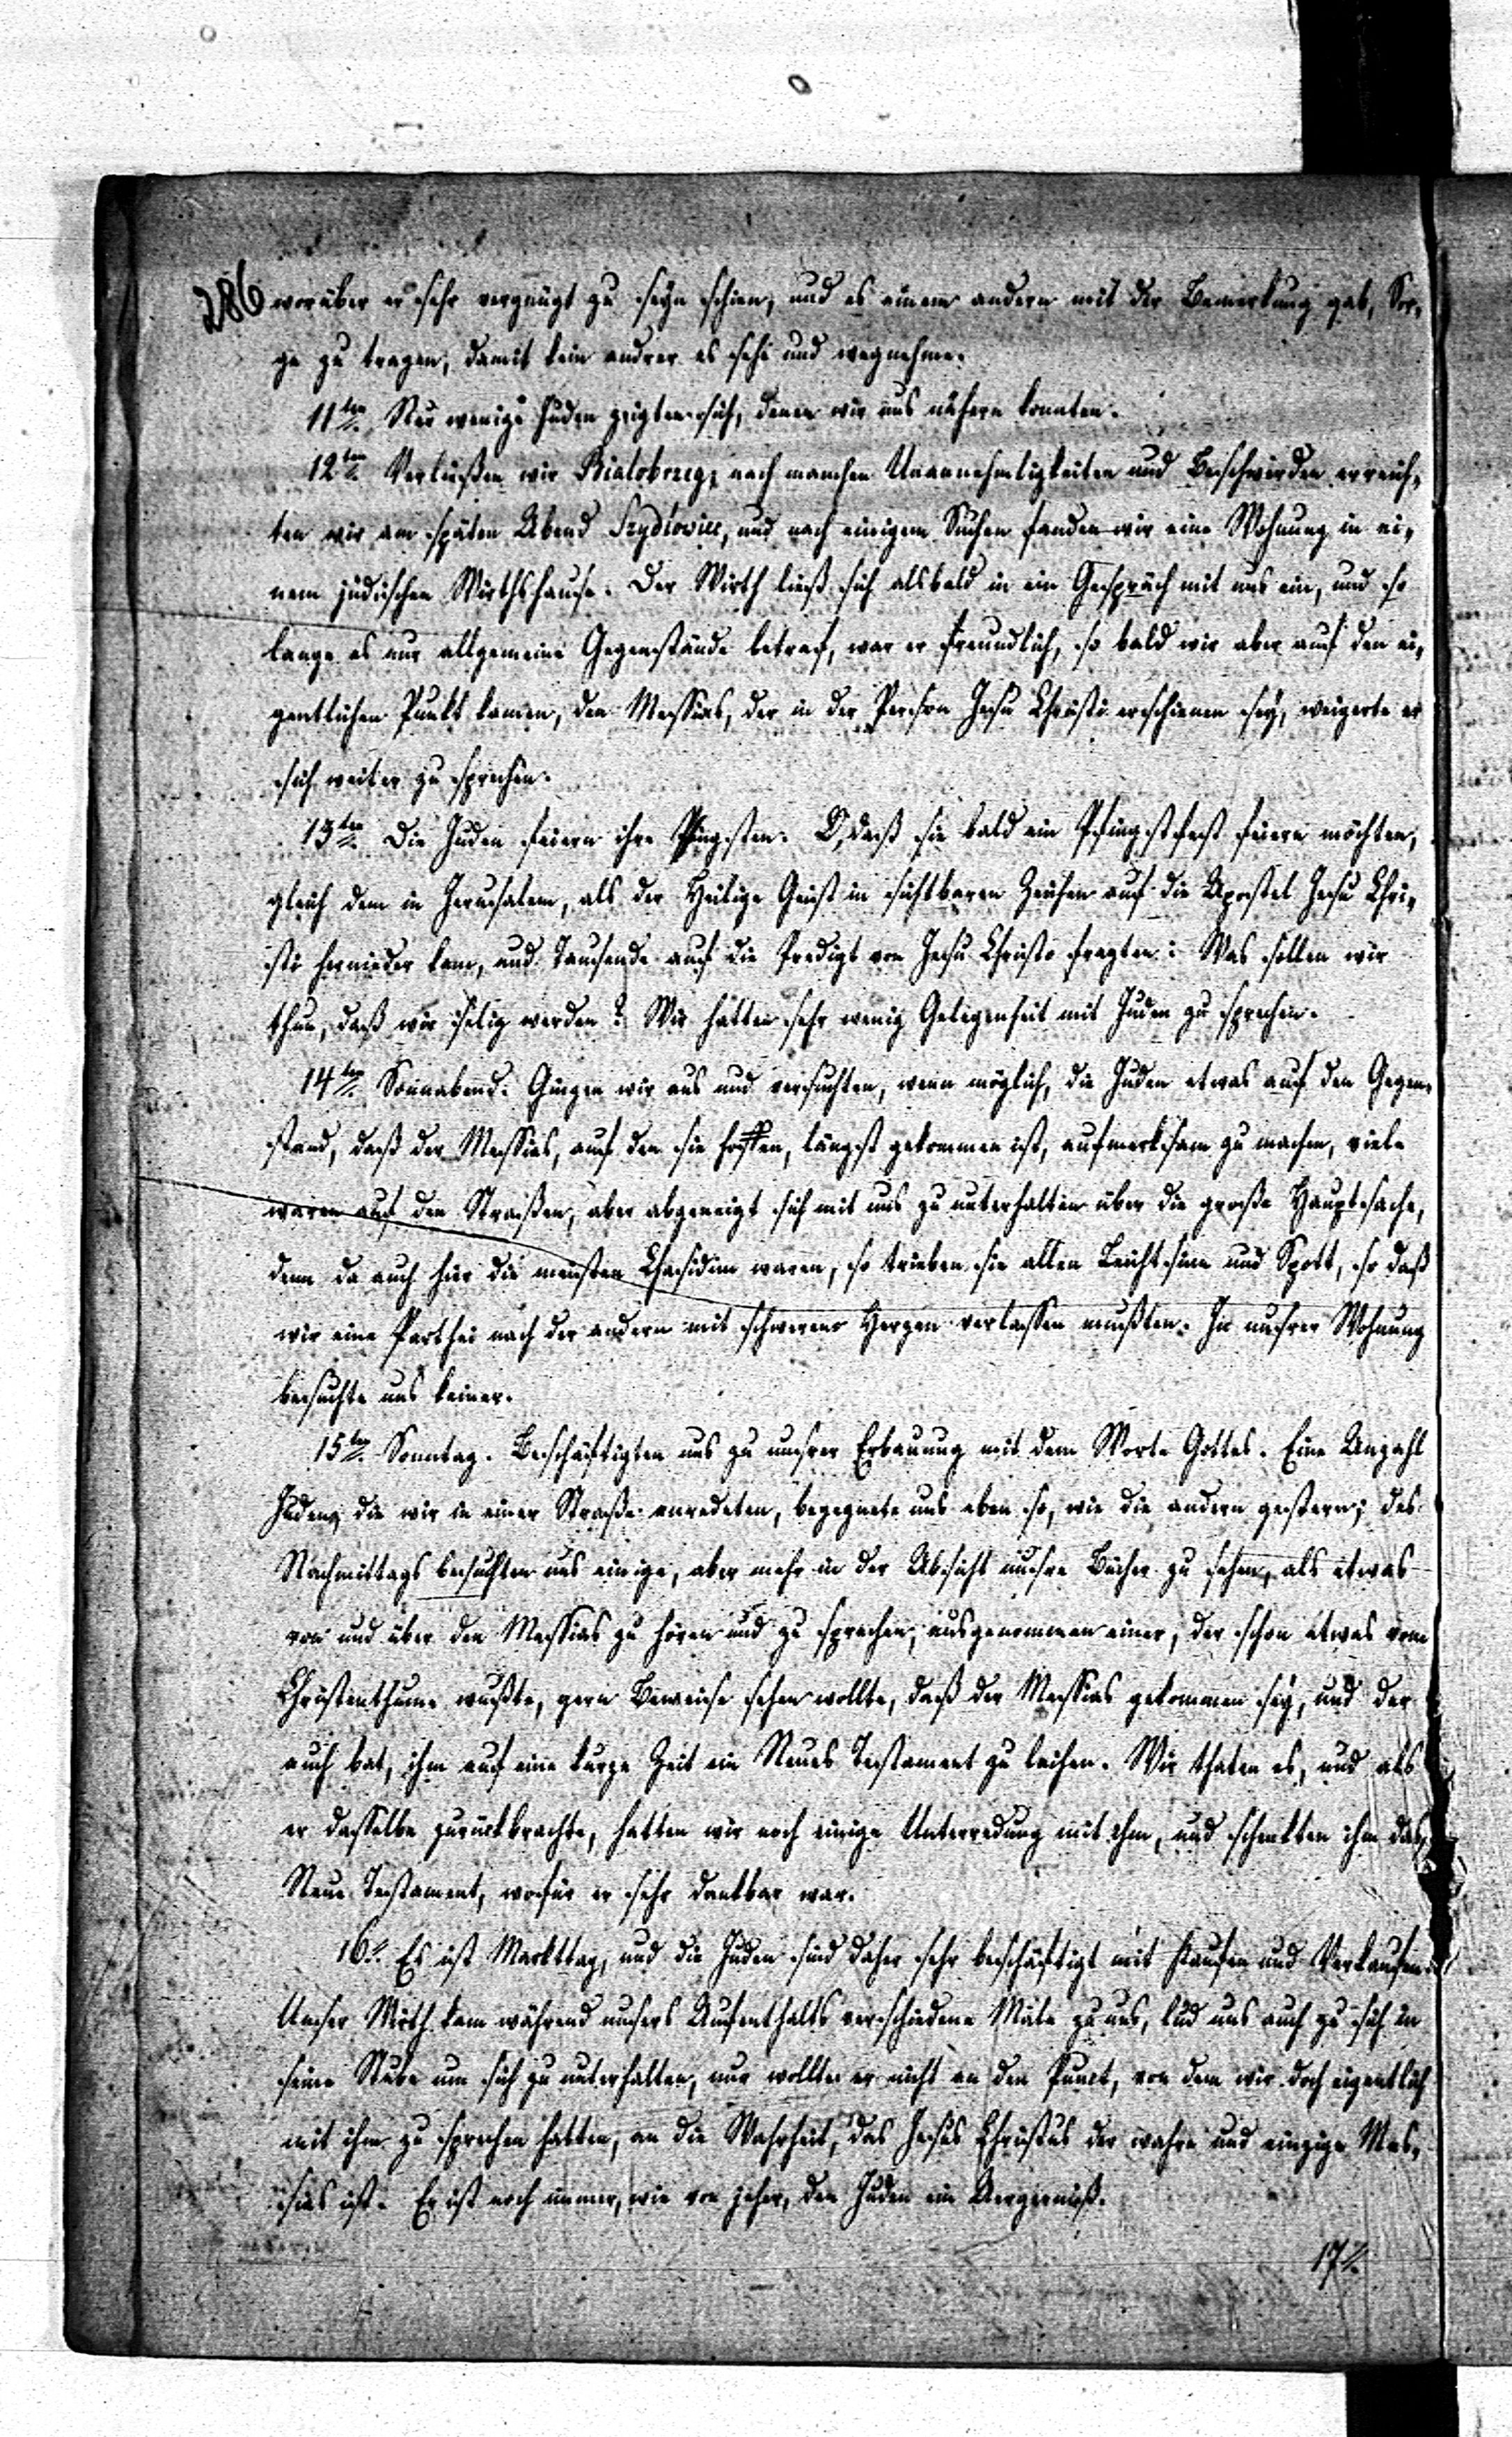 286 worüber er sehr vergnügt zu seyn schien, und es einem andern mit der Bemerkung gab, Sor-
ge zu tragen, damit kein andrer es sehe und wegnehme.
11ten. Nur wenige Juden zeigten sich, denen wir uns nähern konnten.
12ten Verließen wir Bialobrzeg, nach manchen Unannehmligkeiten und Beschwerden erreich-
ten wir am späten Abend Szydlowiec, und nach einigem Suchen fanden wir eine Wohnung in ei-
nem jüdischen Wirthshause. Der Wirth ließ sich alsbald in ein Gespräch mit uns ein, und so
lange es nur allgemeine Gegenstände betraf, war er freundlich, so bald wir aber auf den ei-
gentlichen Punkt kamen, den Messias, der in der Person Jesu Christi erschienen sey, weigerte er
sich weiter zu sprechen.
13ten. Die Juden feiern ihre Pfingsten. O, daß sie bald ein Pfingstfest feiern möchten,
gleich dem in Jerusalem, als der Heilige Geist in sichtbaren Zeichen auf die Apostel Jesu Chri-
sti hernieder kam, und Tausende auf die Predigt von Jesu Christo fragten: Was sollen wir
thun, daß wir selig werden? Wir hatten sehr wenig Gelegenheit mit Juden zu sprechen.
14ten. Sonnabend. Gingen wir aus und versuchten, wenn möglich, die Juden etwas auf den Gegen-
stand, daß der Messias, auf den sie hoffen, längst gekommen ist, aufmerksam zu machen, viele
waren auf den Straßen, aber abgeneigt sich mit uns zu unterhalten über die große Hauptsache,
denn da auch hier die meisten Chasidim waren, so trieben sie allen Leichtsinn und Spott, so daß
wir eine Parthei nach der andern mit schwerem Herzen verlassen mußten. In unsrer Wohnung
besuchte uns keiner.
15ten. Sonntag. Beschäftigten uns zu unsrer Erbauung mit dem Worte Gottes. Eine Anzahl
Juden, die wir in einer Straße anredeten, begegnete uns eben so, wie die andern gestern; des
Nachmittags besuchten uns einige, aber mehr in der Absicht unsre Bücher zu sehen, als etwas
von und über den Messias zu hören und zu sprechen, ausgenommen einer, der schon etwas vom
Christenthume wußte, gern Beweise sehen wollte, daß der Messias gekommen sey, und der
auch bat, ihm auf eine kurze Zeit ein Neues Testament zu leihen. Wir thaten es, und als
er dasselbe zurückbrachte, hatten wir noch einige Unterredung mit ihm, und schenkten ihm das
Neue Testament, wofür er sehr dankbar war.
16n. Es ist Markttag, und die Juden sind daher sehr beschäftigt mit Kaufen und Verkaufen.
Unser Wirth kam während unsers Aufenthalts verschiedene Male zu uns, lud uns auch zu sich in
seine Stube um sich zu unterhalten, nur wollte er nicht an den Punct, von dem wir doch eigentlich
mit ihm zu sprechen hatten, an die Wahrheit, das Jesus Christus der wahre und einzige Mes-
sias ist. Er ist noch immer, wie von jeher, den Juden ein Aergerniß.
17n.